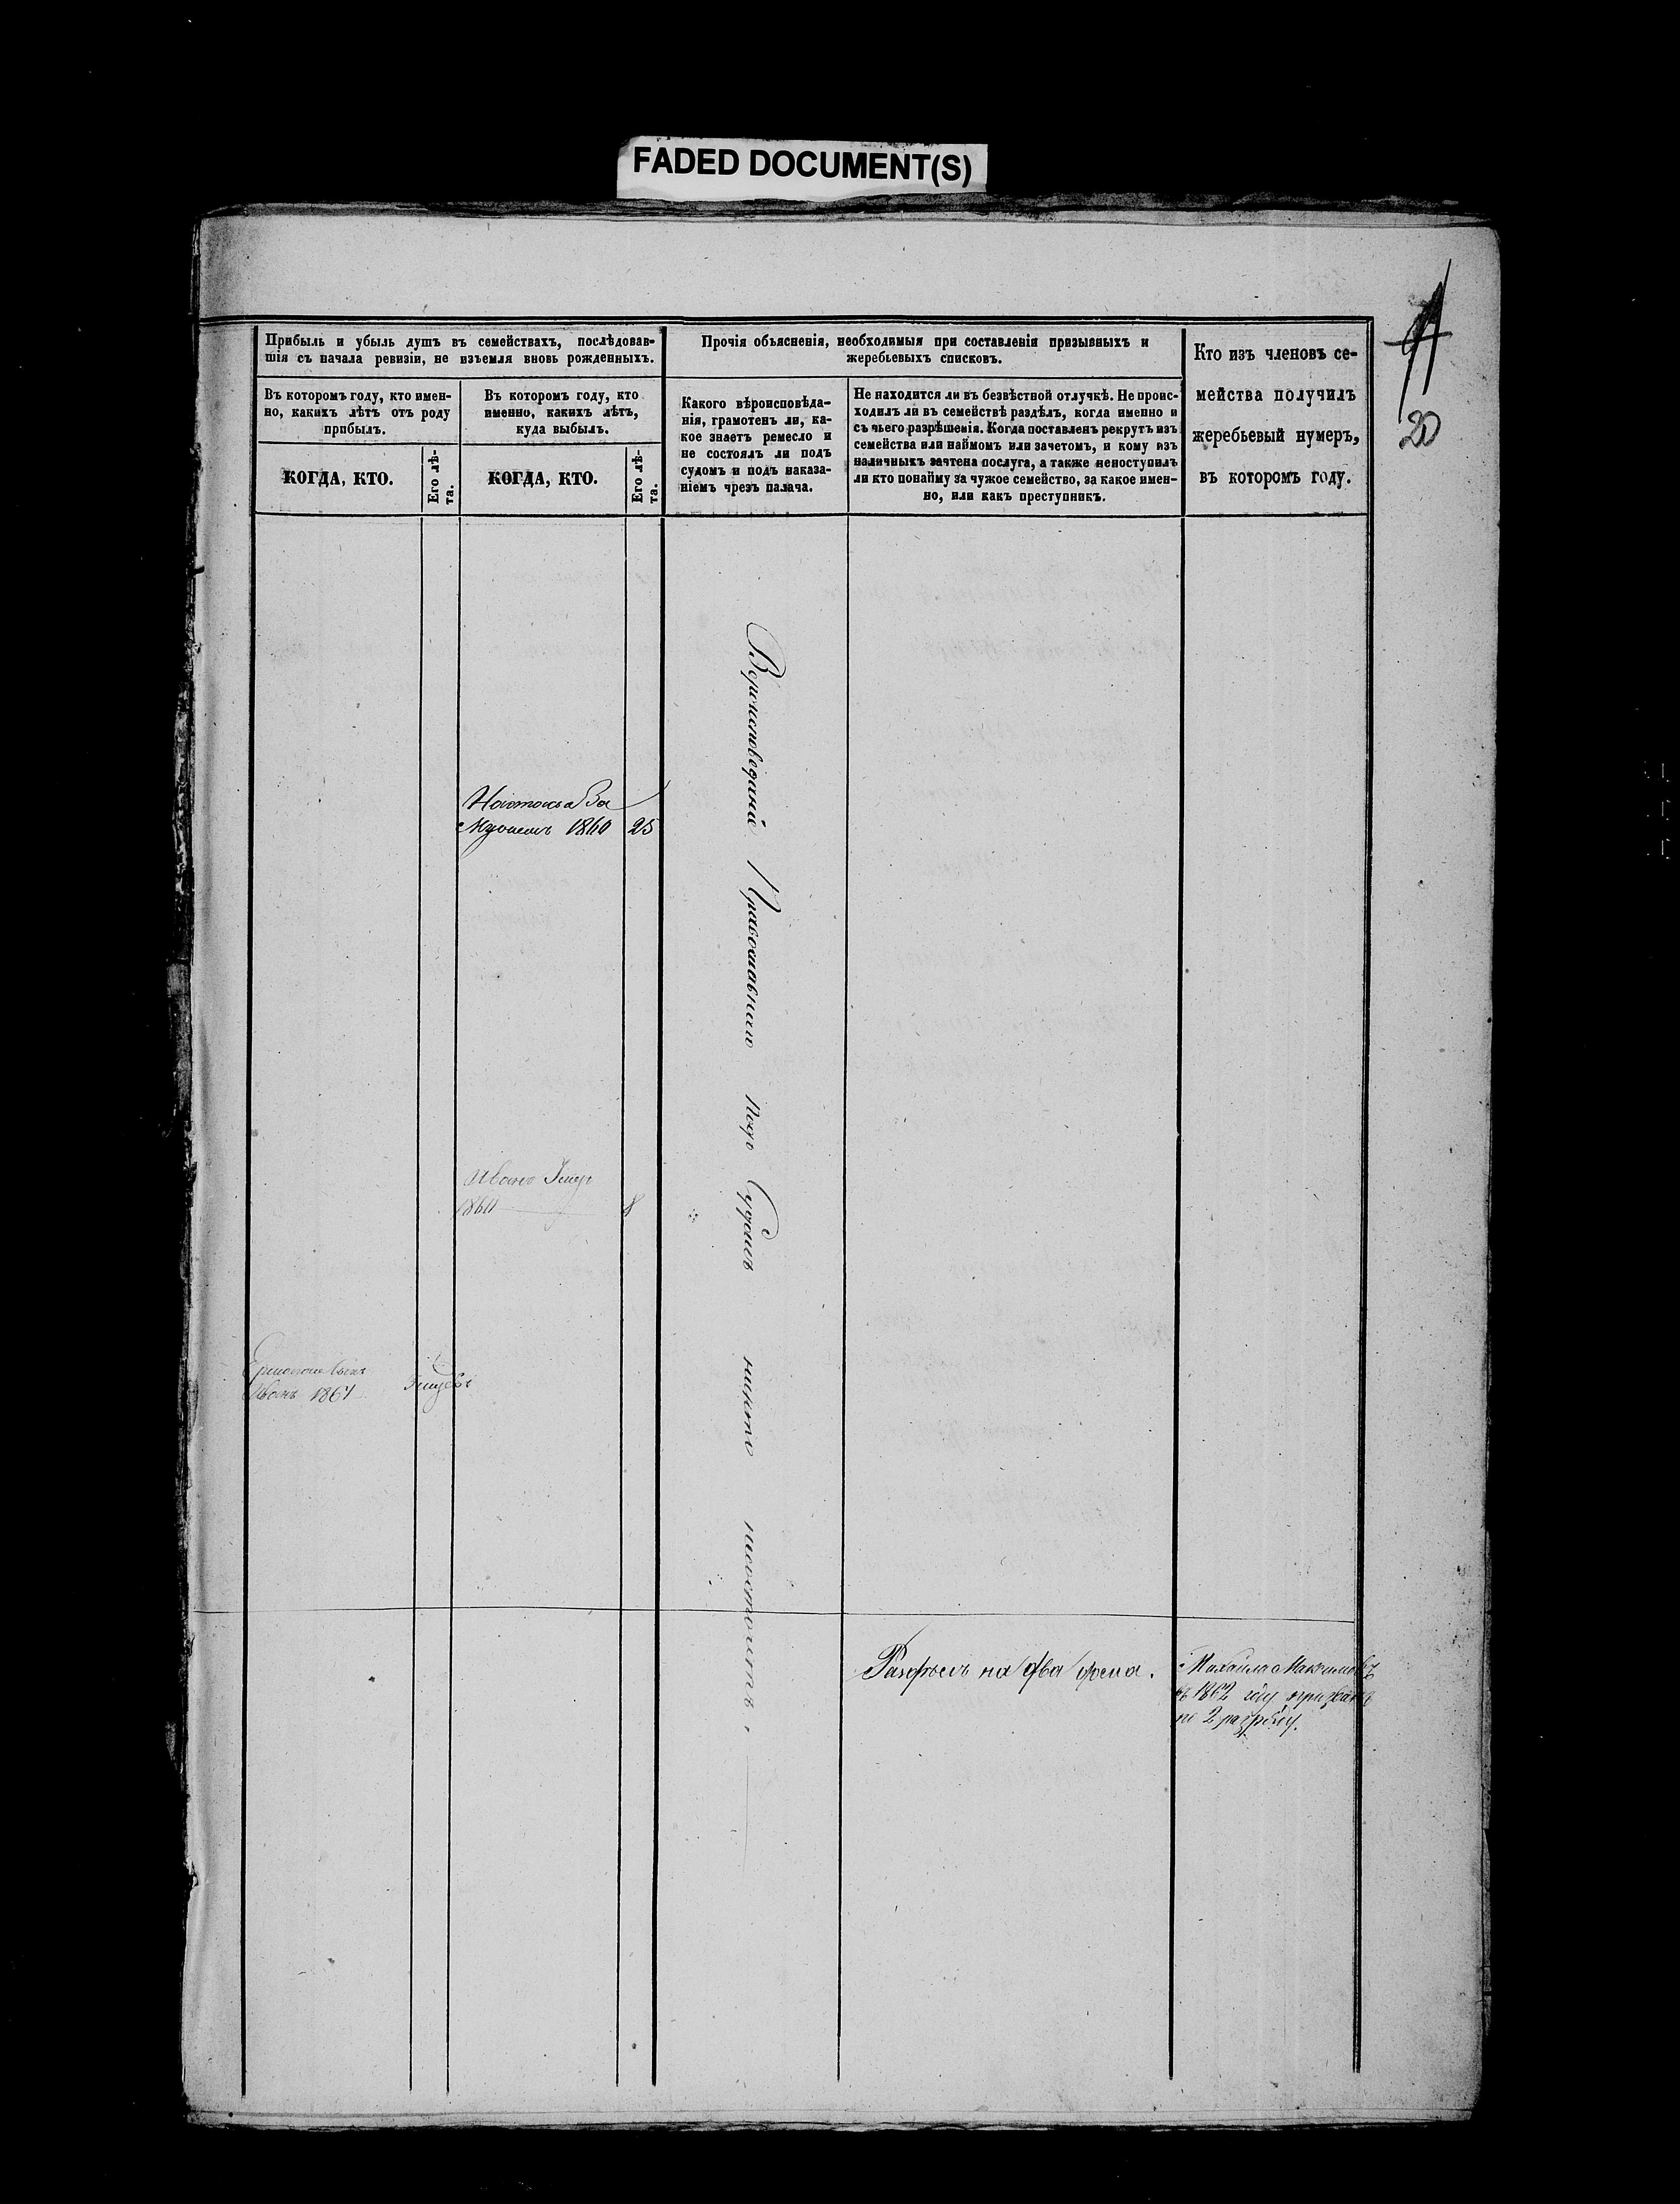 FADED DOCUMENT(S)
20
Прибыль и убыль душъ въ семействахъ, послѣдовав-
шія съ начала ревизіи, не изъемля вновь рожденныхъ.
Прочія объясненія, необходимыя при составленіи призывныхъ и
жеребьевыхъ списковъ.
Кто изъ членовъ се-
мейства получилъ
жеребьевый нумеръ,
въ которомъ году.
Въ которомъ году, кто имен-
но, какихъ лѣтъ отъ роду
прибылъ.
Въ которомъ году, кто
именно, какихъ лѣтъ,
куда выбылъ.
Какого вѣроисповѣда-
нія, грамотенъ ли, ка-
кое знаетъ ремесло и
не состоялъ ли подъ
судомъ и подъ наказа-
ніемъ чрезъ палача.
Не находится ли въ безвѣстной отлучкѣ. Не проис-
ходилъ ли въ семействѣ раздѣлъ, когда именно и
съ чьего разрѣшенія. Когда поставленъ рекрутъ изъ
семейства или наймомъ или зачетомъ, и кому изъ
наличныхъ зачтена послуга, а также непоступилъ
ли кто понайму за чужое семейство, за какое имен-
но, или какъ преступникъ.
КОГДА, КТО.
Его лѣ-
та.
КОГДА, КТО.
Его лѣ-
та.
За
1860 25
Иванъ Умер
1860 8
Иванъ 1861
Вероисповеданія Православнаго подъ Судомъ никто несостоитъ.
на два дома.
Михайла Максимовъ
въ 1862 году призванъ
по 2 разряду.